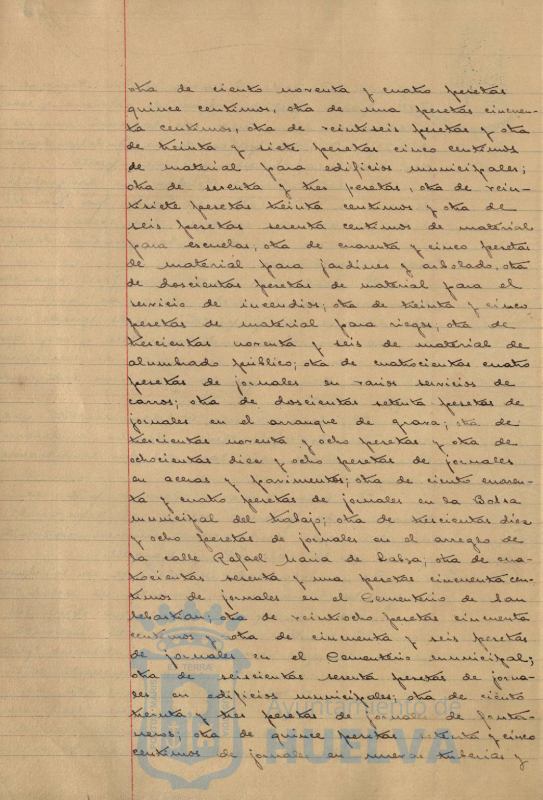 otra de ciento noventa y cuatro pesetas
quince centimos, otra de una pesetas cincuen-
ta centimos, otra de veintiseis pesetas y otra
de treinta y siete pesetas cinco centimos
de material para edificios municipales;
otra de sesenta y tres pesetas, otra de vein-
tisiete pesetas treinta centimos y otra de
seis pesetas sesenta centimos de material
para escuelas; otra de cuarenta y cinco pesetas
de material para jardines y arbolado, otra
de doscientas pesetas de material para el
servicio de incendios; otra de treinta y cinco
pesetas de material para riegos; otra de
trescientas noventa y seis de material de
alumbrado público; otra de cuatrocientas cuatro
pesetas de jornales en varios servicios de
carros; otra de doscientas setenta pesetas de
jornales en el arranque de grava; otra de
trescientas noventa y ocho pesetas y otra de
ochocientas diez y ocho pesetas de jornales
en aceras y pavimentos; otra de ciento cuaren-
ta y cuatro pesetas de jornales en la Bolsa
municipal del trabajo; otra de trescientas diez
y ocho pesetas de jornales en el arreglo de
la calle Rafael Maria de Labra; otra de cua-
trocientas sesenta y una pesetas cincuenta cen-
timos de jornales en el Cementerio de San
Sebastian; otra de veintiocho pesetas cincuenta
centimos y otra de cincuenta y seis pesetas
de jornales en el Cementerio municipal;
otra de seiscientas sesenta pesetas de jorna-
les en edificios municipales; otra de ciento
treinta y tres pesetas de jornales de fonta-
neros; otra de quince pesetas setenta y cinco
centimos de jornales en nuevas tuberias y
Ayuntamiento de
HUELVA